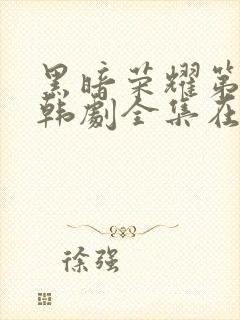 黑暗荣耀第
韩劇全集在
徐强